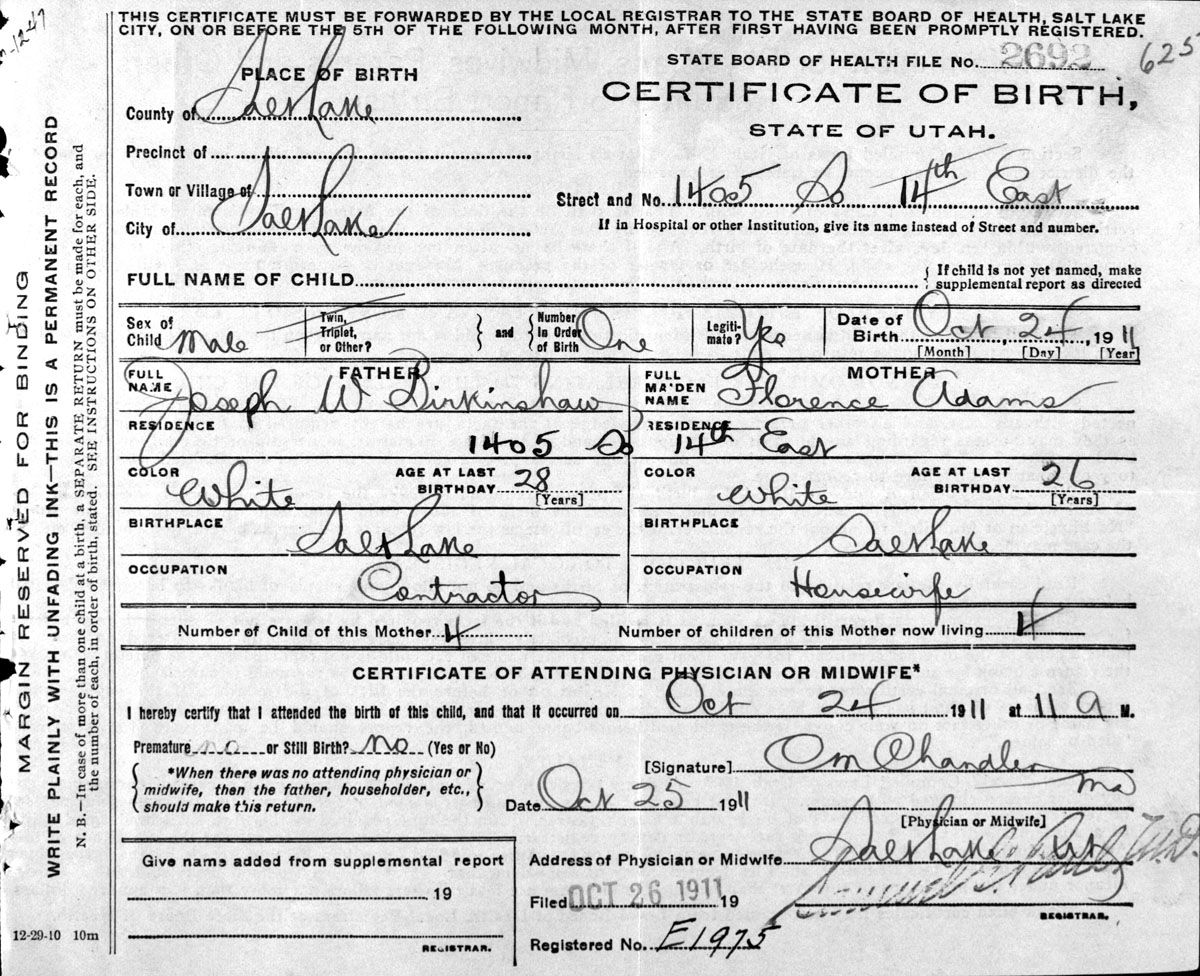 THIS CERTIFICATE MUST BE FORWARDED BY THE LOCAL REGISTRAR TO THE STATE BOARD OF HEALTH, SALT LAKE
CITY, ON OR BEFORE THE 5TH OF THE FOLLOWING MONTH, AFTER FIRST HAVING BEEN PROMPTLY REGISTERED.
STATE BOARD OF HEALTH FILE No. 2692 625
PLACE OF BIRTH
CERTIFICATE OF BIRTH,
STATE OF UTAH.
County of Salt Lake
Precinct of
Town or Village of
City of Salt Lake
Street and No. 1405 So 14th East
If in Hospital or other Institution, give its name instead of Street and number.
FULL NAME OF CHILD
{ If child is not yet named, make
supplemental report as directed
Sex of Child Male
Twin, Triplet, or Other?
and
Number in Order of Birth One
Legiti-mate? Yes
Date of Birth Oct, 24, 1911
[Month] [Day] [Year]
FATHER
FULL NAME Joseph W Birkinshaw
MOTHER
FULL MAIDEN NAME Florence Adams
RESIDENCE 1405 So 14th East
COLOR White
AGE AT LAST BIRTHDAY 28 [Years]
COLOR White
AGE AT LAST BIRTHDAY 26 [Years]
BIRTHPLACE Salt Lake
BIRTHPLACE Salt Lake
OCCUPATION Contractor
OCCUPATION Housewife
Number of Child of this Mother 4
Number of children of this Mother now living 4
CERTIFICATE OF ATTENDING PHYSICIAN OR MIDWIFE*
I hereby certify that I attended the birth of this child, and that it occurred on Oct 24 1911 at 11 a M.
Premature no or Still Birth? no (Yes or No)
{ *When there was no attending physician or
midwife, then the father, householder, etc.,
should make this return. }
[Signature] C M Chandler MD
Date Oct 25 1911
[Physician or Midwife]
Give name added from supplemental report
19
REGISTRAR.
Address of Physician or Midwife Salt Lake
Filed OCT 26 1911 19
REGISTRAR.
Registered No. E1975
12-29-10 10m
MARGIN RESERVED FOR BINDING
WRITE PLAINLY WITH UNFADING INK—THIS IS A PERMANENT RECORD
N. B.—In case of more than one child at a birth, a SEPARATE RETURN must be made for each, and
the number of each, in order of birth, stated. SEE INSTRUCTIONS ON OTHER SIDE.